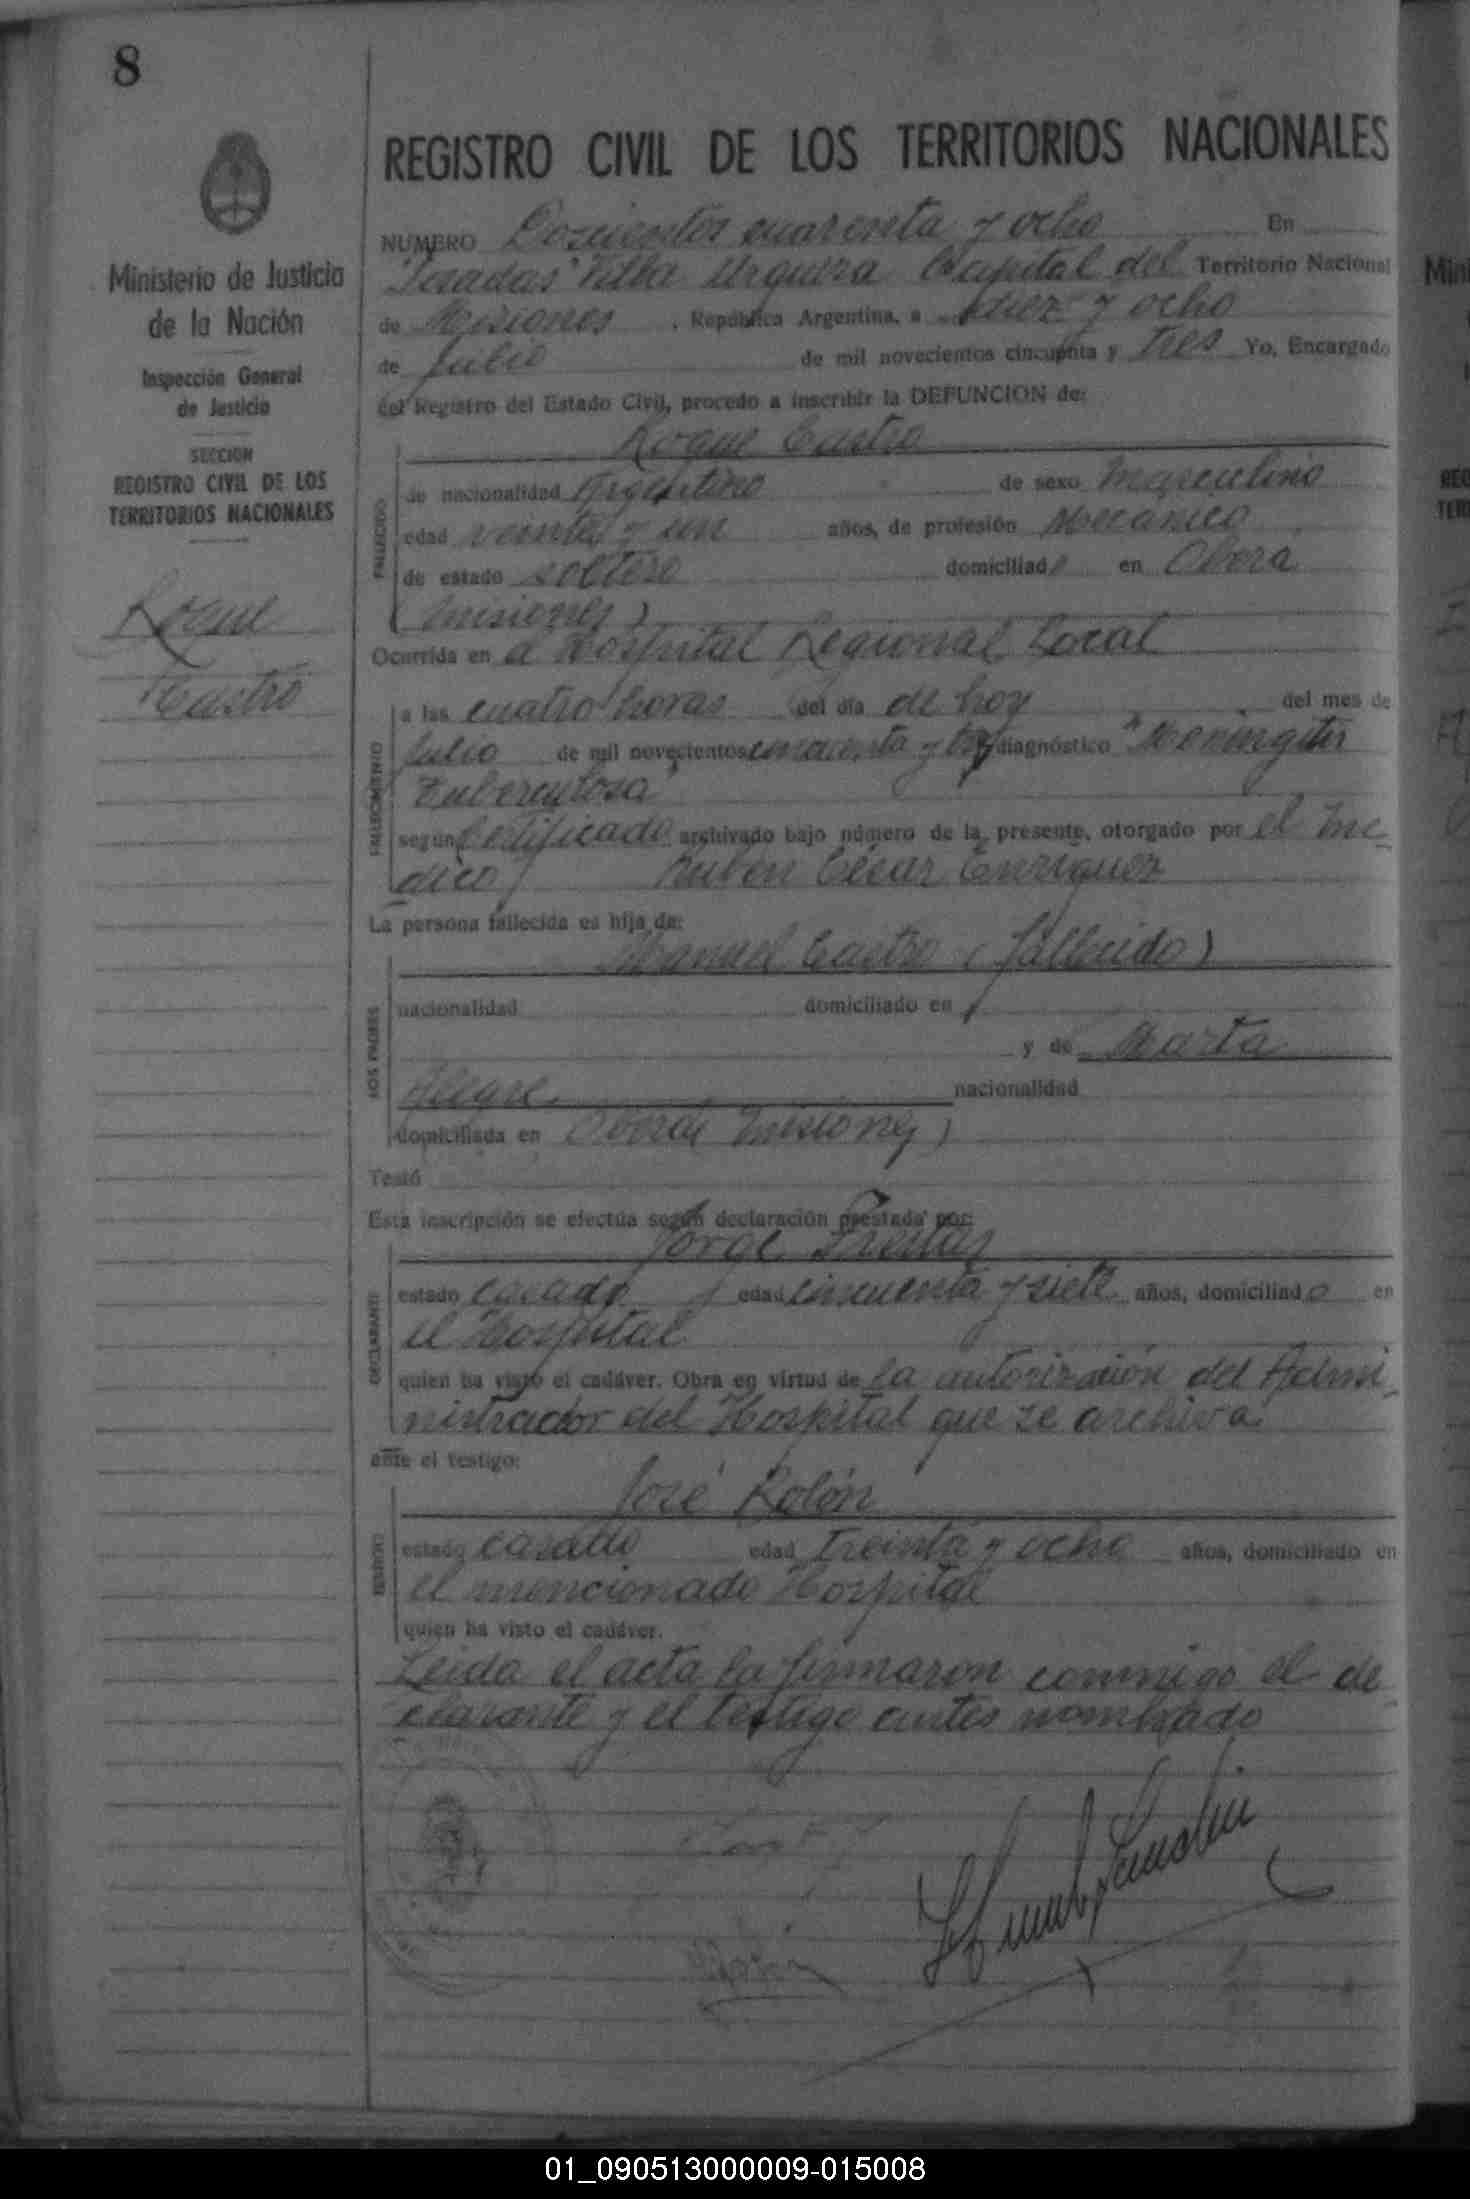 8
REGISTRO CIVIL DE LOS TERRITORIOS NACIONALES
Ministerio de Justicia
de la Nación
Inspección General
de Justicia
SECCION
REGISTRO CIVIL DE LOS
TERRITORIOS NACIONALES
Roque
Castro
NUMERO Doscientos cuarenta y ocho En
Posadas Villa Urquiza Capital del Territorio Nacional
de Misiones, República Argentina, a diez y ocho
de Julio de mil novecientos cincuenta y tres Yo, Encargado
del Registro del Estado Civil, procedo a inscribir la DEFUNCION de:
Roque Castro
FALLECIDO
de nacionalidad Argentino de sexo Masculino
edad veinte y un años, de profesión Mecánico
de estado soltero domiciliado en Oberá
(Misiones)
Ocurrida en el Hospital Regional Local
FALLECIMIENTO
a las cuatro horas del día de hoy del mes de
Julio de mil novecientos cincuenta y tres diagnóstico "Meningitis
Tuberculosa"
según Certificado archivado bajo número de la presente, otorgado por el Me-
dico Rubén César Enriquez
La persona fallecida es hija de:
LOS PADRES
Manuel Castro (fallecido)
nacionalidad domiciliado en
y de Marta
Alegre nacionalidad
domiciliada en Oberá (Misiones)
Testó
Esta inscripción se efectúa según declaración prestada por:
DECLARANTE
Jorge Freitas
estado casado edad cincuenta y siete años, domiciliado en
el Hospital
quien ha visto el cadáver. Obra en virtud de la autorización del Admi-
nistrador del Hospital que se archiva
ante el testigo:
TESTIGO
José Rolón
estado casado edad treinta y ocho años, domiciliado en
el mencionado Hospital
quien ha visto el cadáver.
Leida el acta la firmaron conmigo el de-
clarante y el testigo antes nombrado
01_090513000009-015008